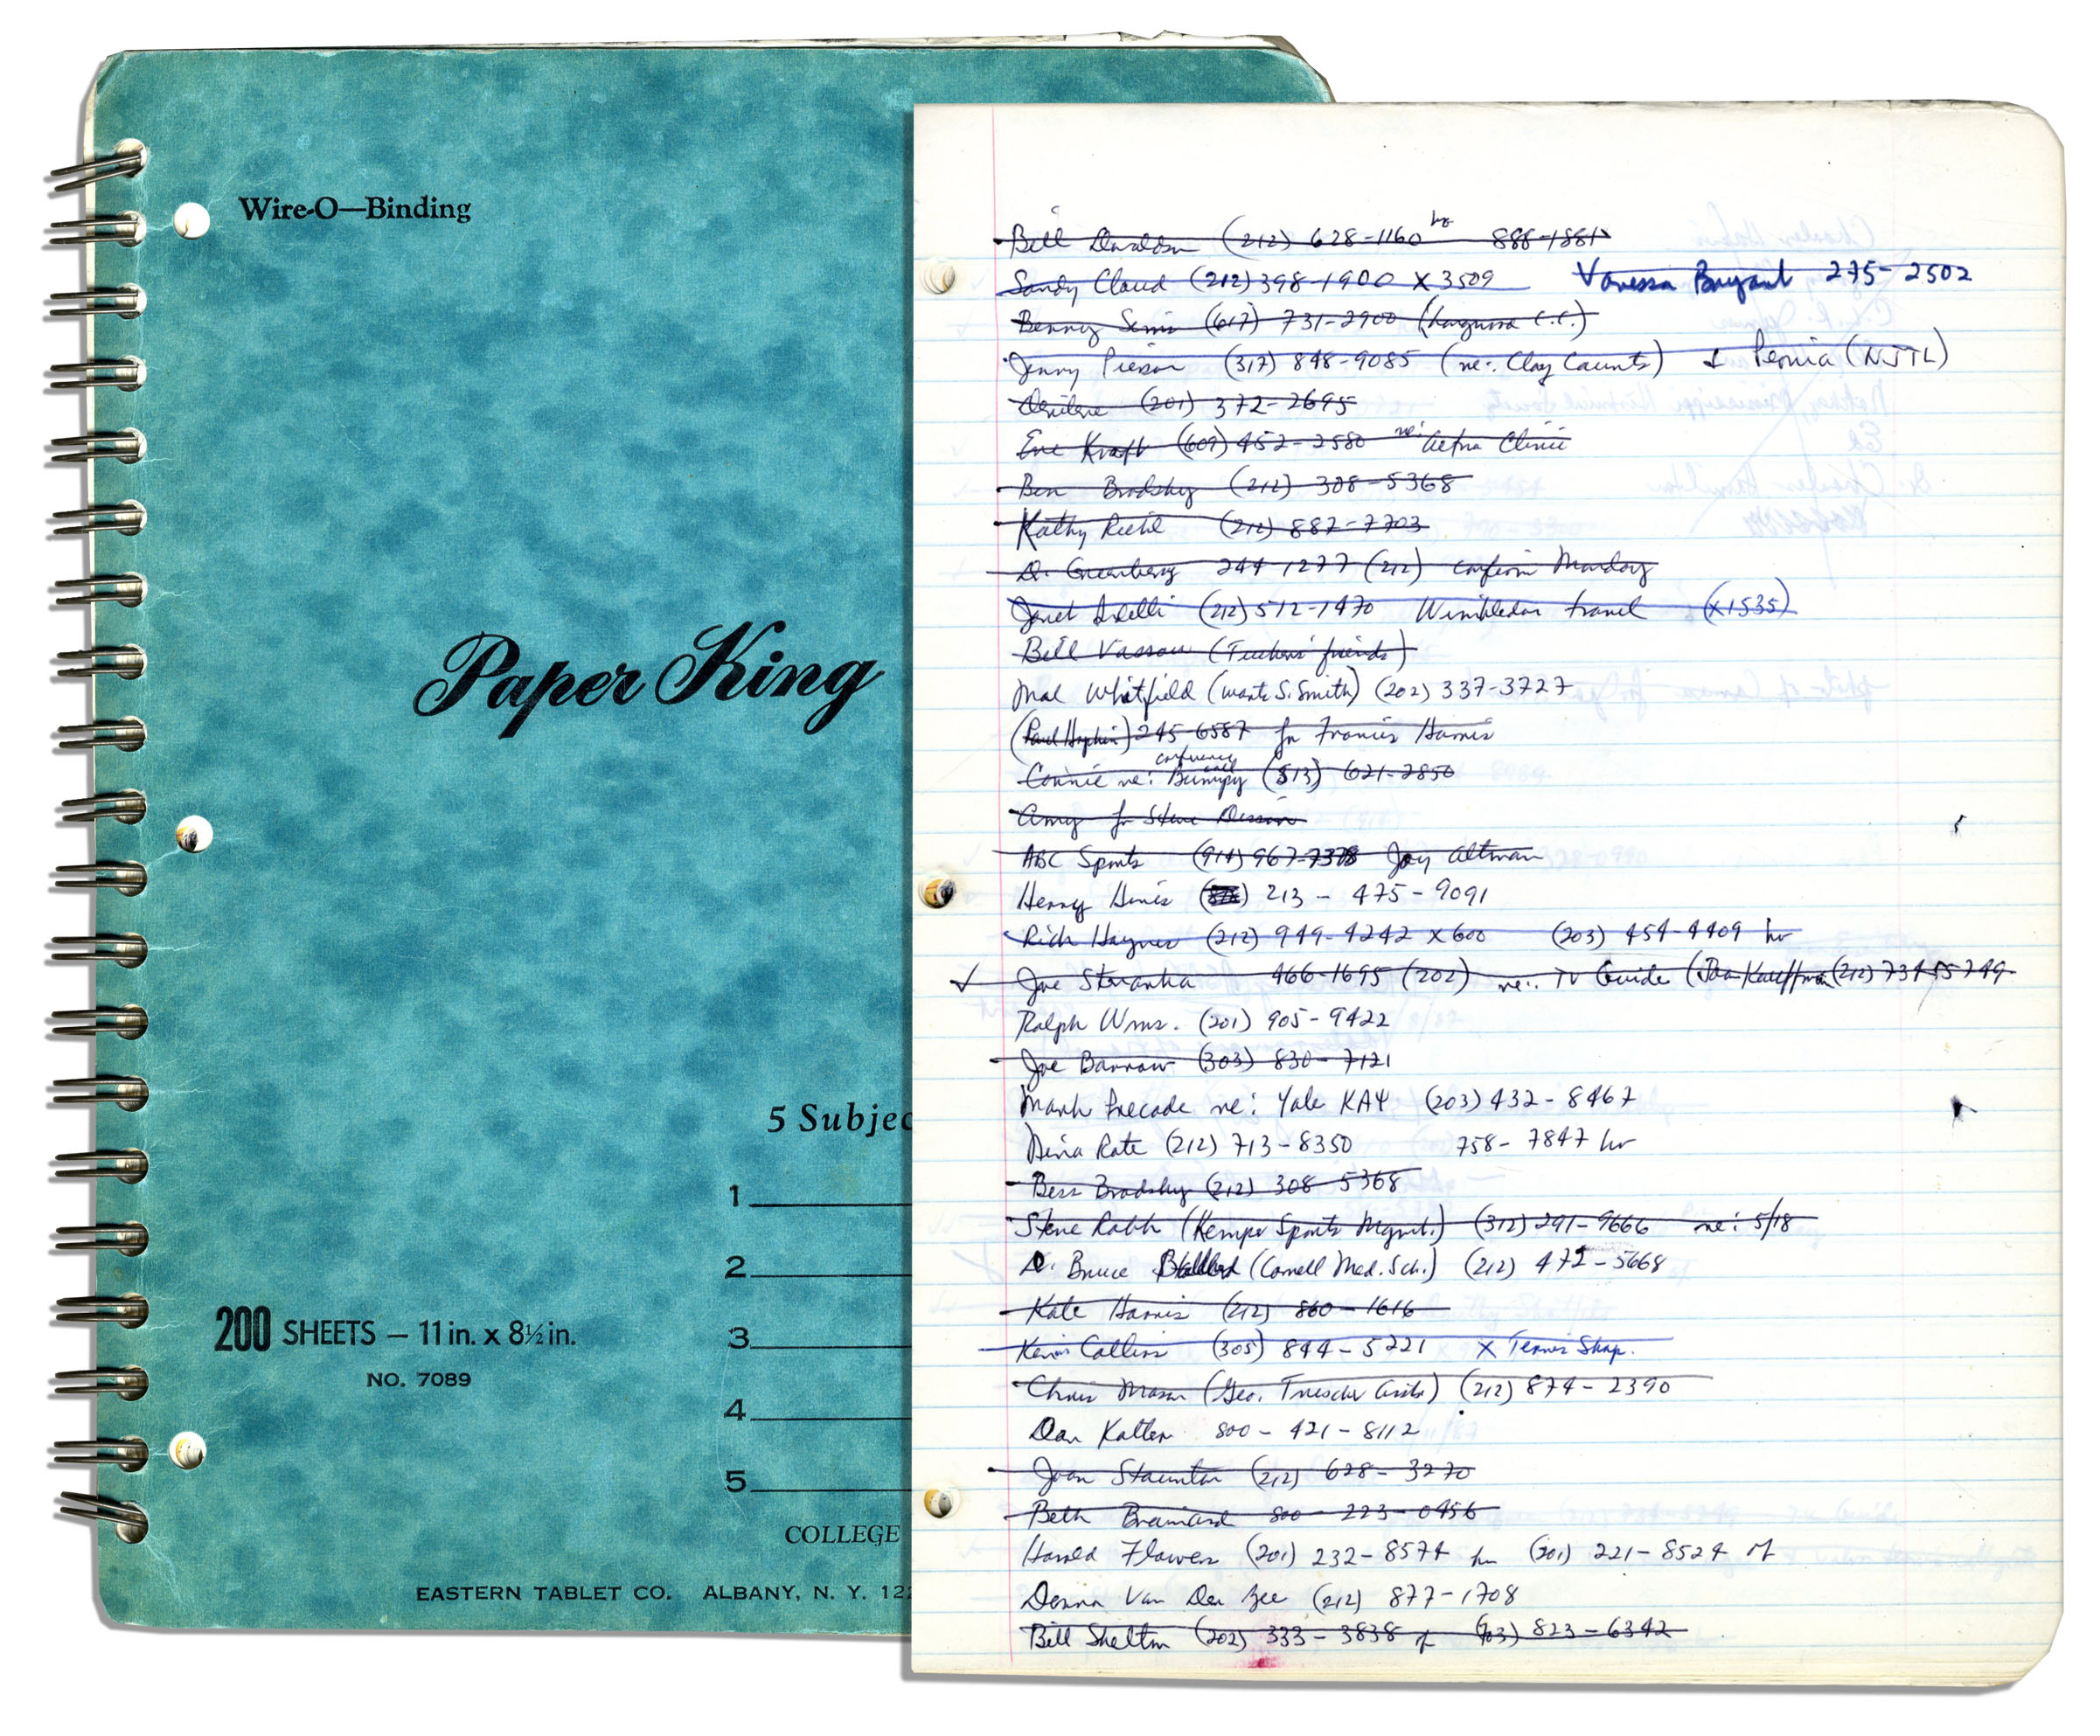 Wire-O—Binding
Paper King
5 Subjec
1
2
3
4
5
200 SHEETS — 11 in. x 8½ in.
NO. 7089
COLLEGE
EASTERN TABLET CO. ALBANY, N. Y. 12
Bill Donaldson (212) 628-1160 hr 888-1881
Sandy Cloud (212) 398-1900 X 3509 Vanessa Bryant 275-2502
Benny Sims (617) 731-2900 (Longwood C.C.)
Jenny Pierson (317) 848-9085 (re: Clay Courts) & Peoria (NJTL)
(201) 372-2695
Eve Kraft (609) 452-2580 re: Aetna Clinic
Ben Brodsky (212) 308-5368
Kathy Riehl (212) 887-7703
D. Greenberg 244-1277 (212) confirm Monday
Janet (212) 512-1470 Wimbledon travel (X1535)
Bill Vassar (Tucker's friends)
Mal Whitfield (wants S. Smith) (202) 337-3727
(Paul Hopkin) 245-6587 for Francis Harris
conference call
Connie re: Bumpy (513) 621-2850
Amy for Steve
ABC Sports (914) 967-7378 Joy Altman
Henry Hines 213-475-9091
Rich Haynes (212) 949-4242 X600 (203) 454-4409 hr
Joe 466-1695 (202) re: TV Guide (Joan Kauffman (212) 734-5749
Ralph Wms. (201) 905-9422
Joe Barrow (303) 830-7121
Mark re: Yale KAΨ (203) 432-8467
Nina Rate (212) 713-8350 758-7847 hr
Bess Brodsky (212) 308-5368
Steve Rabb (Kemper Sports Mgmt.) (312) 291-9666 re: 5/18
D. Bruce Ballard (Cornell Med. Sch.) (212) 472-5668
Kate Harris (212) 860-1616
Kevin Collins (305) 844-5221 X Tennis Shop.
Chris Mason (Geo. ) (212) 874-2390
Dan Kalter 800-421-8112
Joan Staunton (212) 628-3270
Beth Brainard 800-223-0456
Harold Flowers (201) 232-8574 hr (201) 221-8524 of
Donna Van Der Zee (212) 877-1708
Bill Shelton (202) 333-3838 of (703) 823-6342